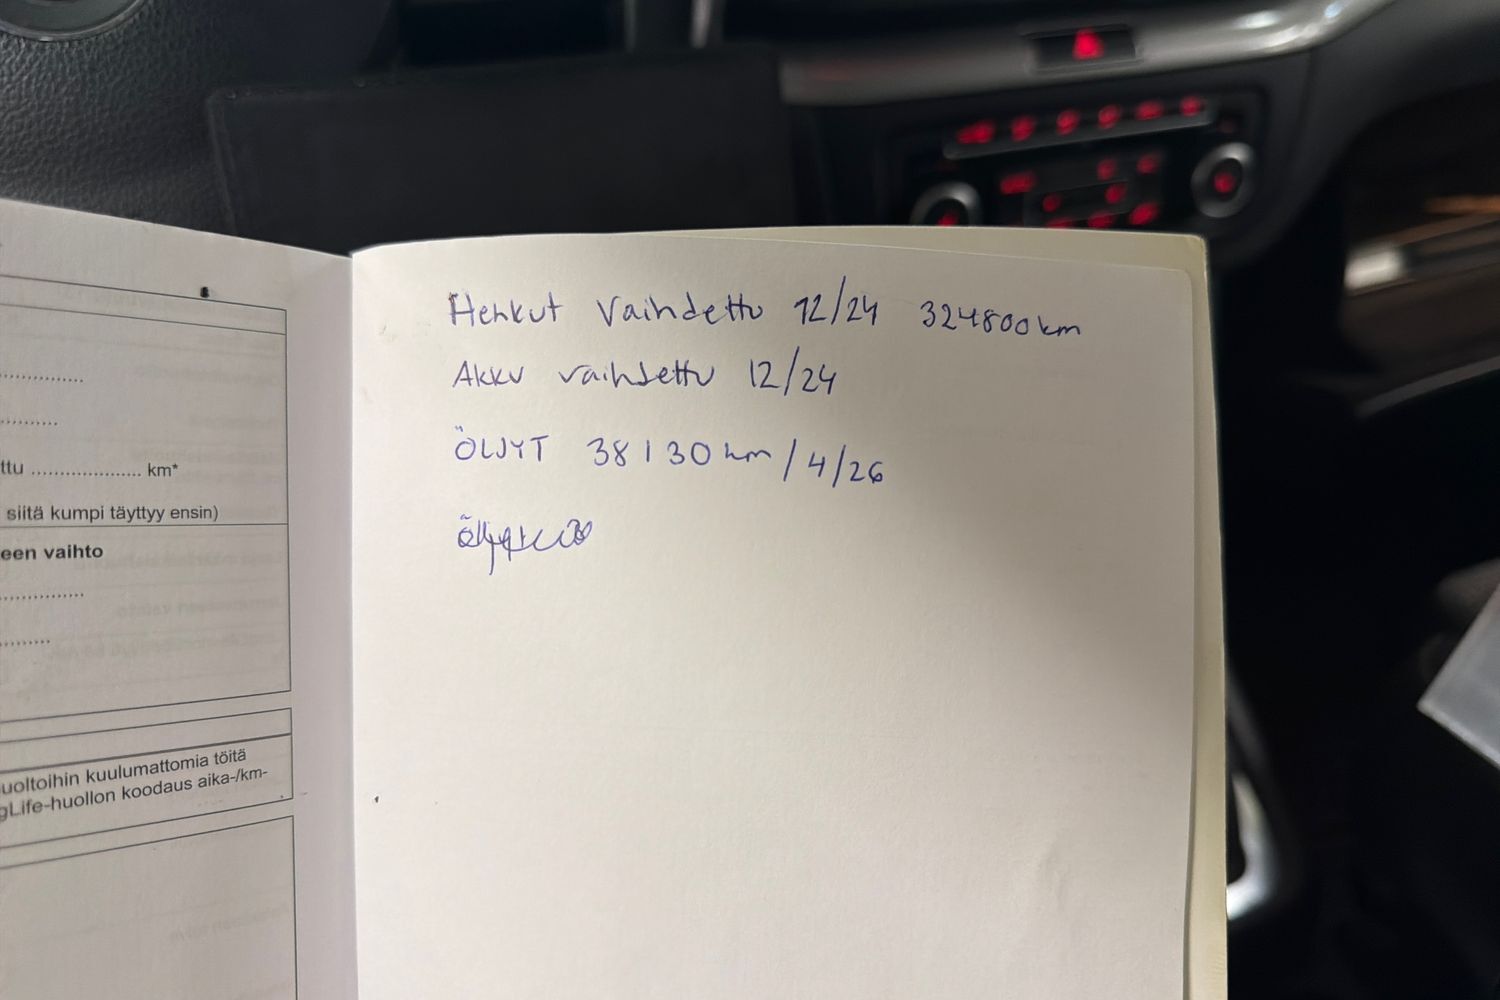 ttu .................... km*
siitä kumpi täyttyy ensin)
een vaihto
uoltoihin kuulumattomia töitä
gLife-huollon koodaus aika-/km-
Hehkut vaihdettu 12/24 324800 km
Akku vaihdettu 12/24
ÖLJYT 38130 km / 4/26